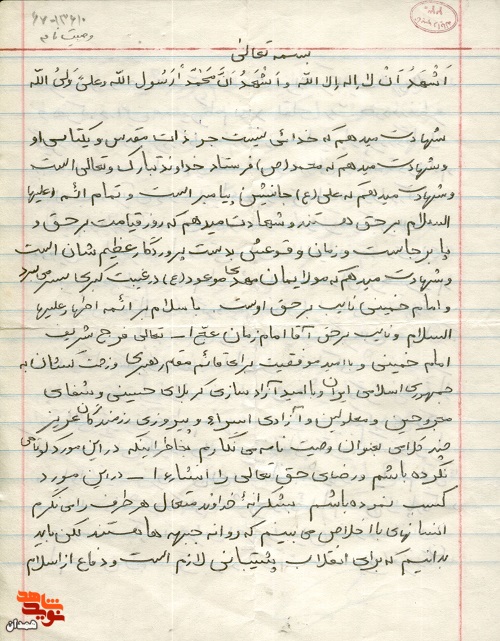 ۶۷-۱۳۶۱۰
وصیت نامه
بسمه تعالی
اَشْهَدُ اَنْ لا اِلهَ اِلا اللّه و اَشْهَدُ اَنَّ مُحَمَّدً رَسُول اللّه وعلیً وَلیُ اللّه
شهادت میدهم که خدائی نیست جز ذات مقدس و یکتای او
و شهادت میدهم که محمد(ص) فرستاد خداوند تبارک و تعالی است
و شهادت میدهم که علی(ع) جانشین پیامبر است و تمام ائمه اعلیها
السلام بر حق هستند و شهادت میدهم که روز قیامت بر حق و
پا برجاست و زمان و قوعش بدست پروردگار عظیم شان است
و شهادت میدهم که مولایمان مهدی موعود(ع) در غیبت کبری بسر می برد
و امام خمینی نایب بر حق اوست. با سلام بر ائمه اطهار علیها
السلام و نایب بر حق آقا امام زمان عجا... تعالی فرج شریف
امام خمینی و با امید موفقیت برای قائم مقام رهبری و زحمت کشان به
جمهوری اسلامی ایران و با امید آزاد سازی کربلای حسینی و شفای
مجروحین و معلولین و آزادی اسراء و پیروزی رزمندگان عزیز
چند کلامی بعنوان وصیت نامه می نگارم بخاطر اینکه در این مورد کوتاهی
نکرده باشم و رضای حق تعالی را انشاءا... در این مورد
کسب نموده باشم بشکرانهٔ خداوند متعال هر طرف را می نگرم
انسانهای با اخلاص می بینم که روانه جبهه ها هستند لکن باید
بدانیم که برای انقلاب پشتیبانی لازم است و دفاع از اسلام
نوید شاهد
همدان